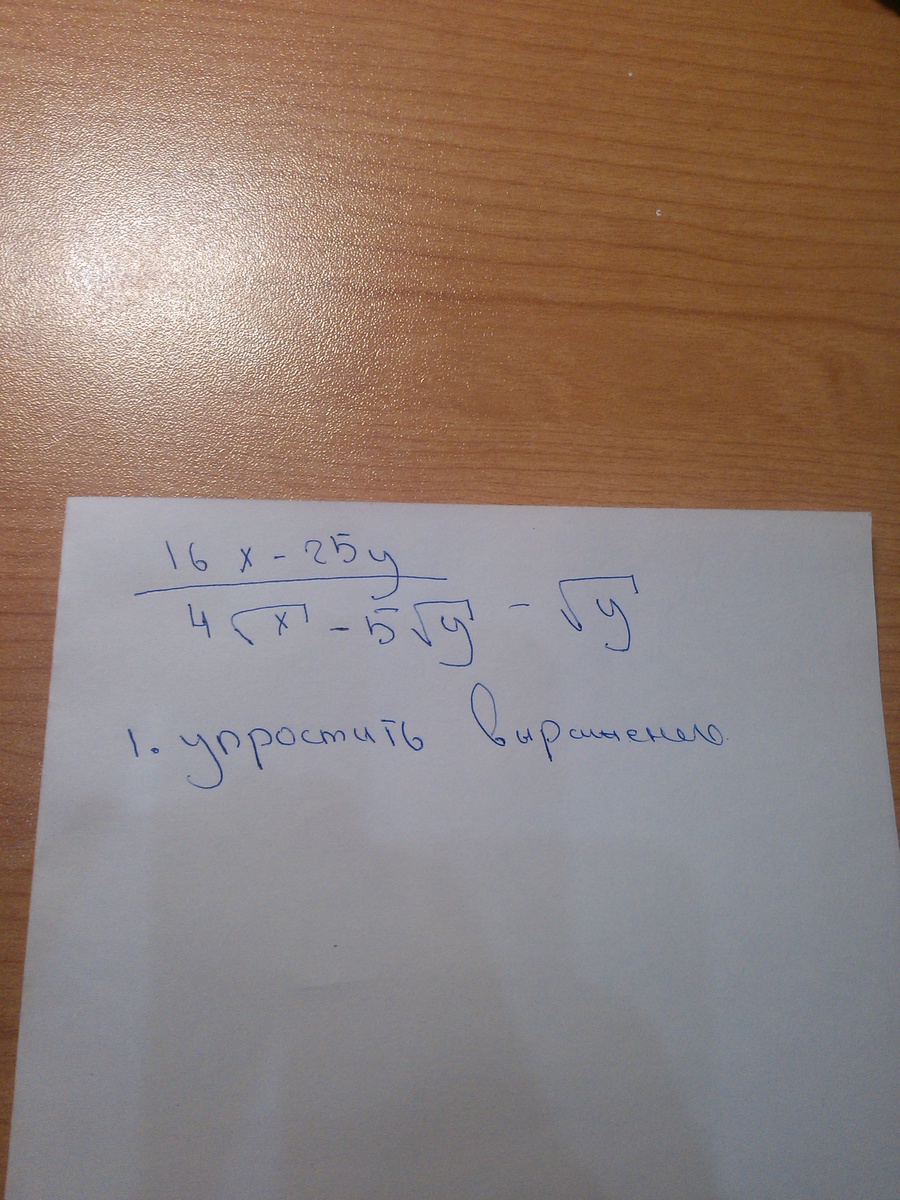 16x - 25y
4√x - 5√y - √y
1. упростить выражению.